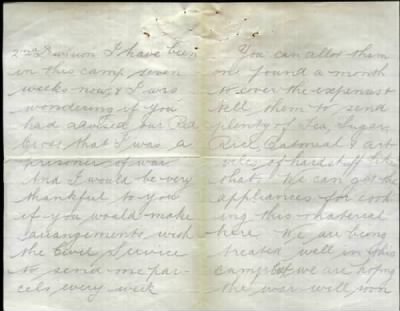 2nd Division I have been
in this camp seven
weeks now, & I was
wondering if you
had advised our Red
Cross that I was a
prisoner of war
And I would be very
thankful to you
if you would make
arrangements with
the Civil Service
to send me par-
cels every week
You can allot them
one pound a month
to cover the expenses &
tell them to send
plenty of Tea, Sugar,
Rice, Oatmeal & art-
icles of hard stuff like
that. We can get the
appliances for cook-
ing this material
here We are being
treated well in this
camp but we are hoping
the war will soon